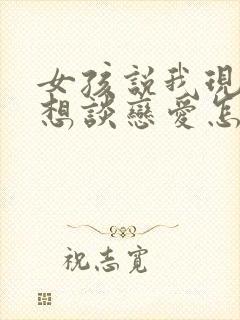 女孩説我現
想談戀愛怎
祝志寬